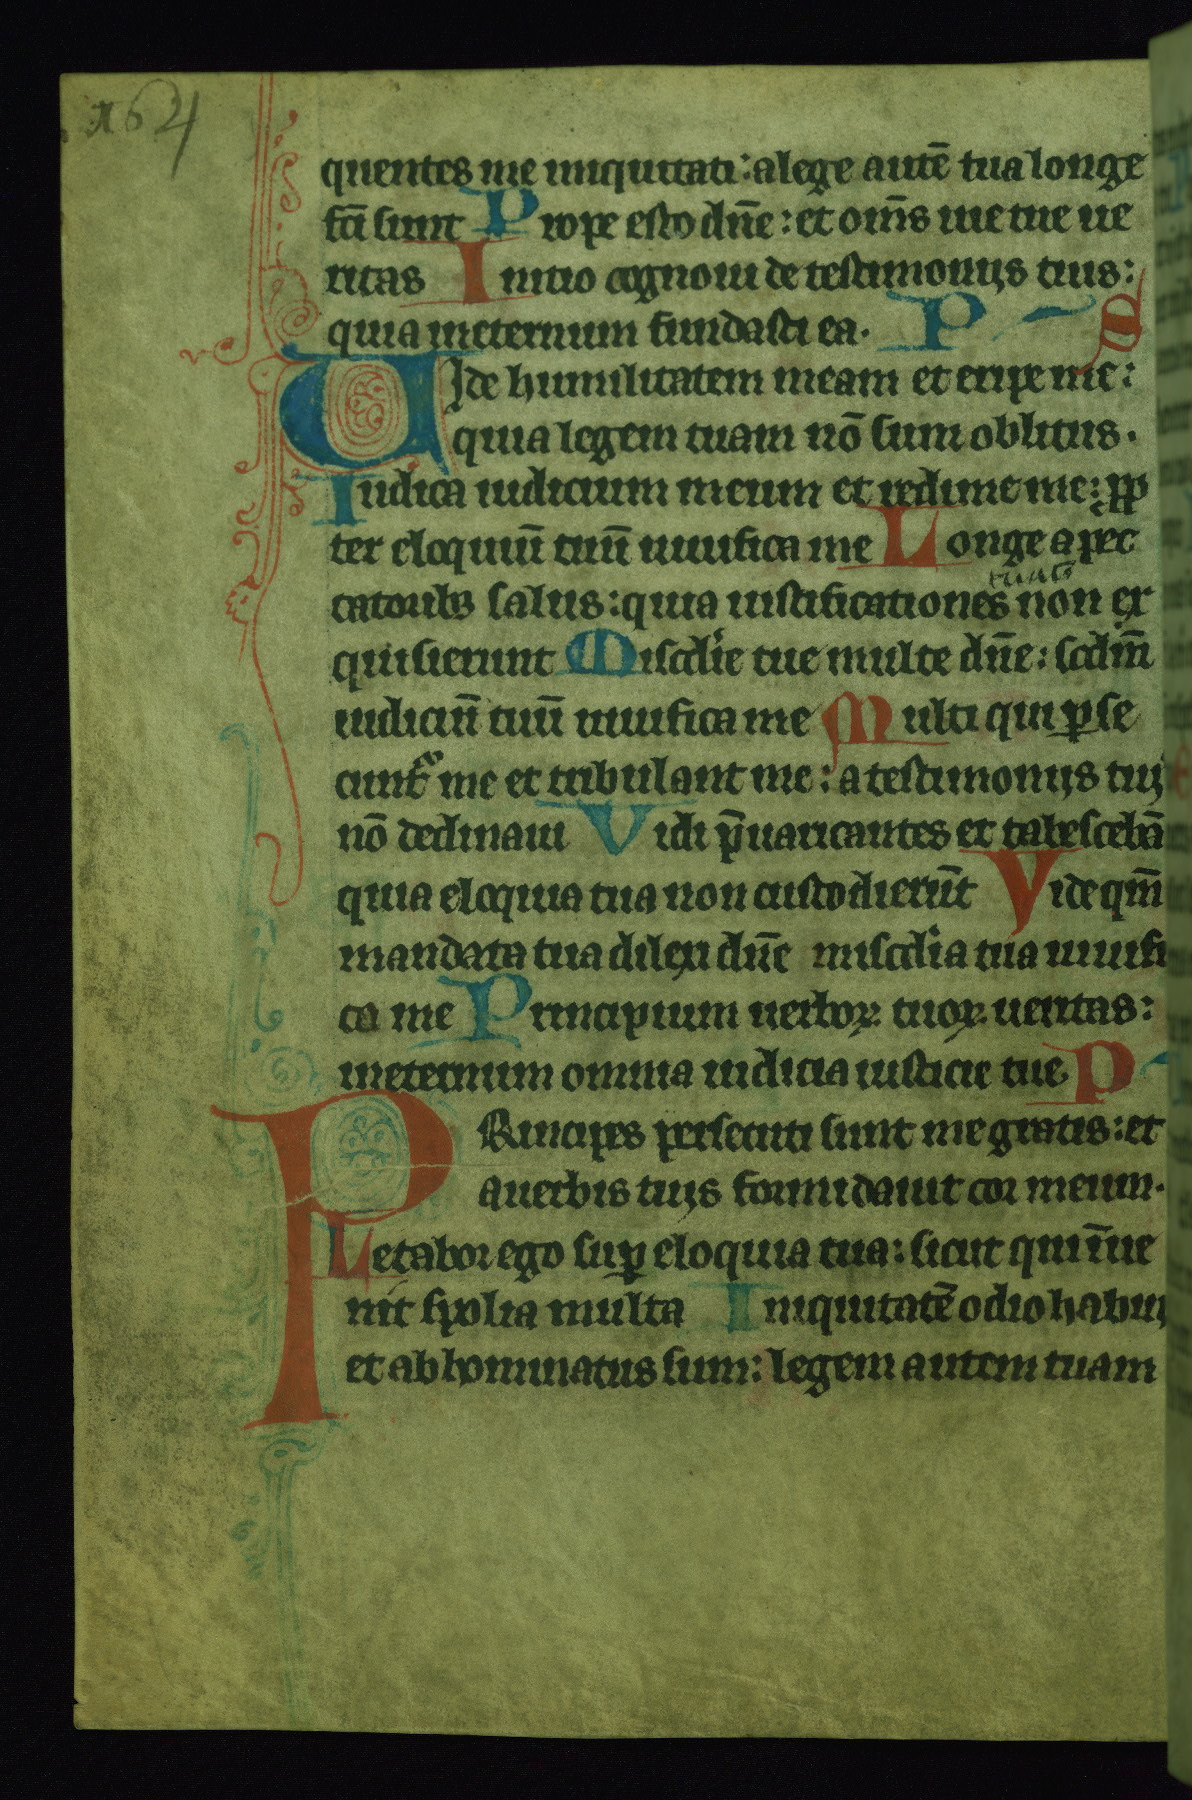 164
quentes me iniquitati: a lege autē tua longe
fc̄i sunt Prope esto dn̄e: et om̄s uie tue ue
ritas Initio cognoui de testimonijs tuis:
quia ineternum fundasti ea. P S
VIde humilitatem meam et eripe me:
quia legem tuam nō sum oblitus.
Iudica iudicium meum et redime me: ꝓp
ter eloquiū tuū uiuifica me Longe a pec
tuas
catoribꝰ salus: quia iustificationes non ex
quisierunt Misc̄die tue multe dn̄e: scdm̄
iudiciū tuū uiuifica me Multi qui ꝑse
cunt᷑ me et tribulant me: a testimonijs tuis
nō declinaui Vidi p̄uaricantes et tabescebā
quia eloquia tua non custodierūt Vide qm̄
mandata tua dilexi dn̄e misc̄dia tua uiuifi
ca me Principium uerboꝝ tuoꝝ ueritas:
ineternum omnia iudicia iusticie tue P
PRincipes persecuti sunt me gratis: et
a uerbis tuis formidauit cor meum.
Letabor ego suꝑ eloquia tua: sicut qui īue
nit spolia multa Iniquitatē odio habui
et abhominatus sum: legem autem tuam